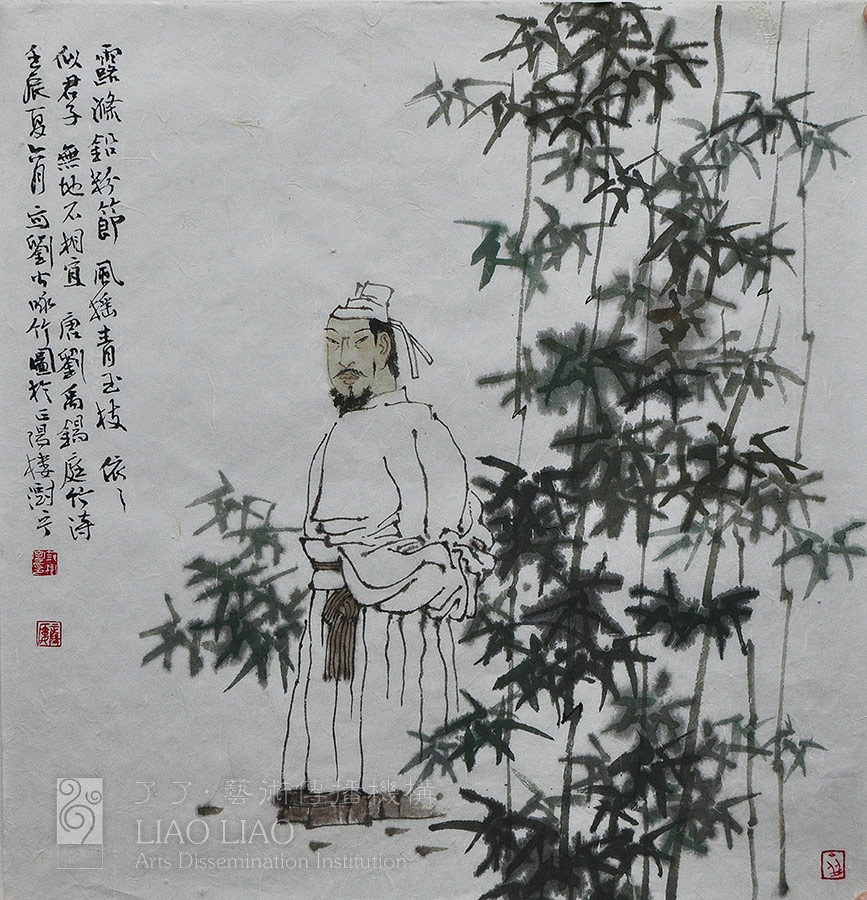 露滌鉛粉節 風搖青玉枝 依〻
似君子 無地不相宜 唐劉禹錫庭竹詩
壬辰夏六月 寫劉公咏竹圖於正陽樓
了了·藝術傳播機構
LIAO LIAO
Arts Dissemination Institution